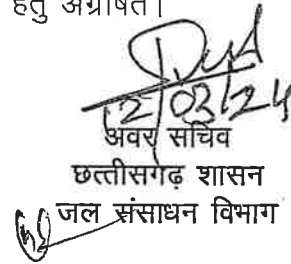 हेतु अग्रेषित।
12/03/24
अवर सचिव
छत्तीसगढ़ शासन
जल संसाधन विभाग